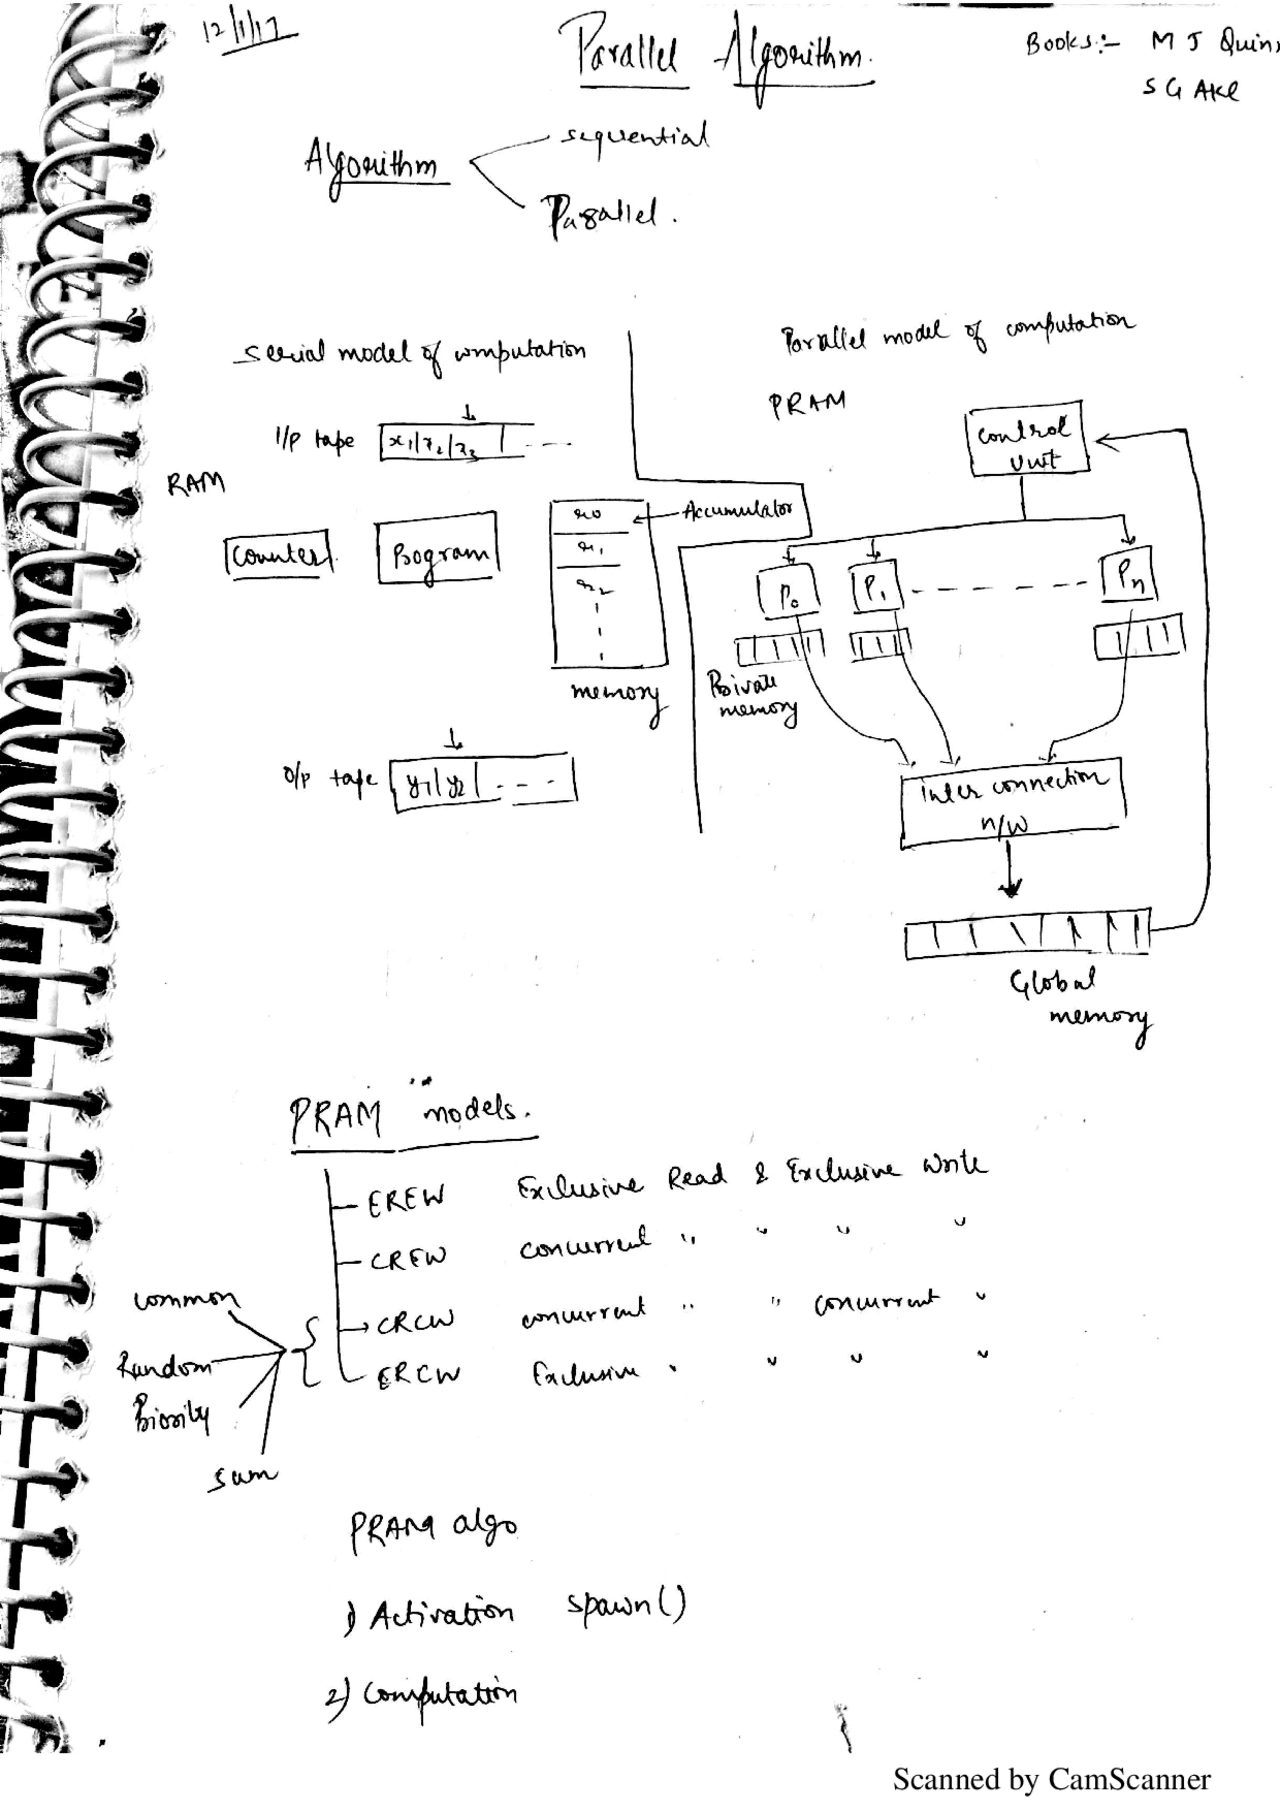 12/1/17
Parallel Algorithm.
Books:- M J Quinn
S G Akl
Algorithm
sequential
Parallel.
Serial model of computation
Parallel model of computation
PRAM
control unit
I/p tape x1 | x2 | x3 | - - -
RAM
Counter
Program
r0
Accumulator
r1
r2
memory
P0 P1 - - - - - - - Pn
Private memory
o/p tape y1 | y2 | - - - -
Inter connection n/w
Global memory
PRAM models.
EREW Exclusive Read & Exclusive Write
CREW concurrent " " " "
CRCW concurrent " " concurrent "
ERCW Exclusive " " " "
common
Random
Priority
sum
PRAM algo
1) Activation spawn()
2) Computation
Scanned by CamScanner